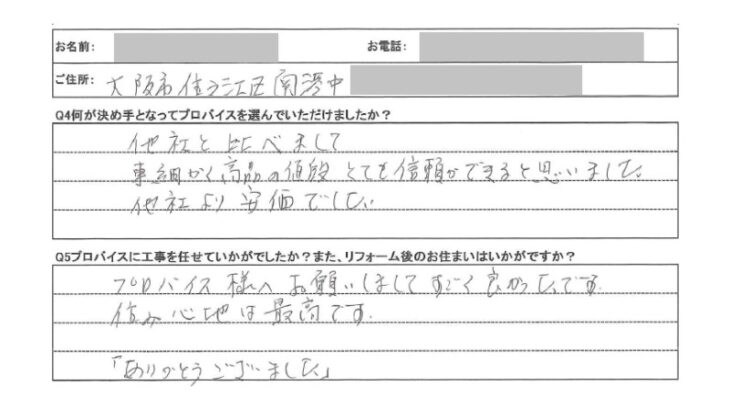 お名前:
お電話:
ご住所: 大阪市住之江区南港中
Q4何が決め手となってプロバイスを選んでいただけましたか？
他社と比べまして
細かく商品の値段とても信頼ができると思いました
他社より安価でした
Q5プロバイスに工事を任せていかがでしたか？また、リフォーム後のお住まいはいかがですか？
プロバイス様へお願いしましてすごく良かったです
住み心地は最高です.
「ありがとうございました」